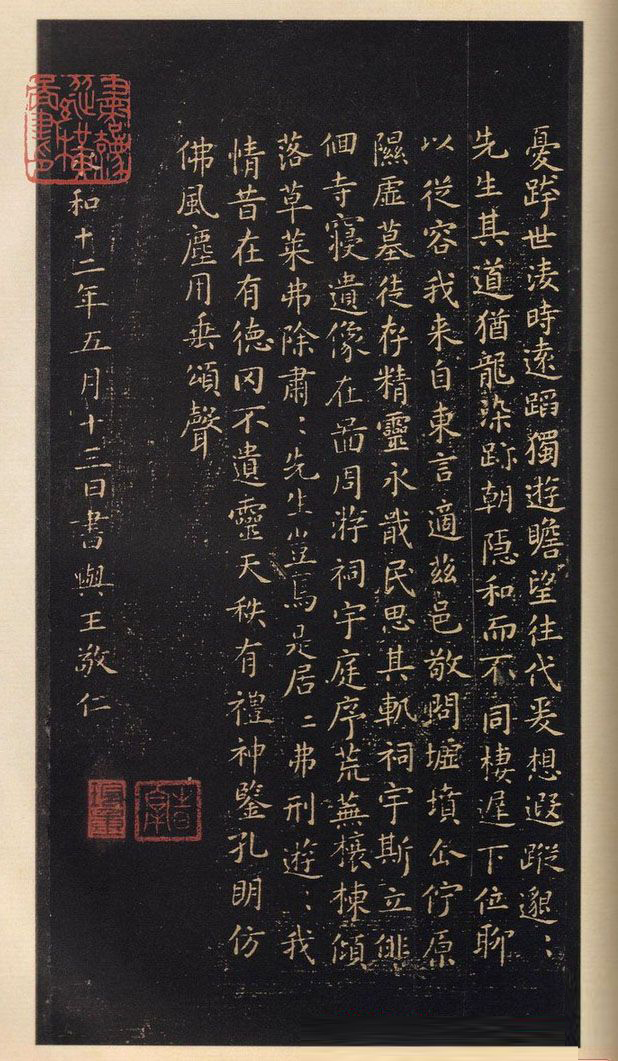 憂跨世淩時遠蹈獨遊瞻望往代爰想遐蹤邈：
先生其道猶龍染跡朝隐和而不同棲遅下位聊
以從容我来自東言適茲邑敬問墟墳企佇原
隰虛墓徒存精靈永戢民思其軌祠宇斯立俳
佪寺寝遺像在啚周游祠宇庭序荒蕪榱棟傾
落草莱弗除肅：先生豈焉是居：弗刑遊：我
情昔在有德罔不遺靈天秩有禮神鑒孔明仿
佛風塵用垂頌聲
和十二年五月十三日書與王敬仁